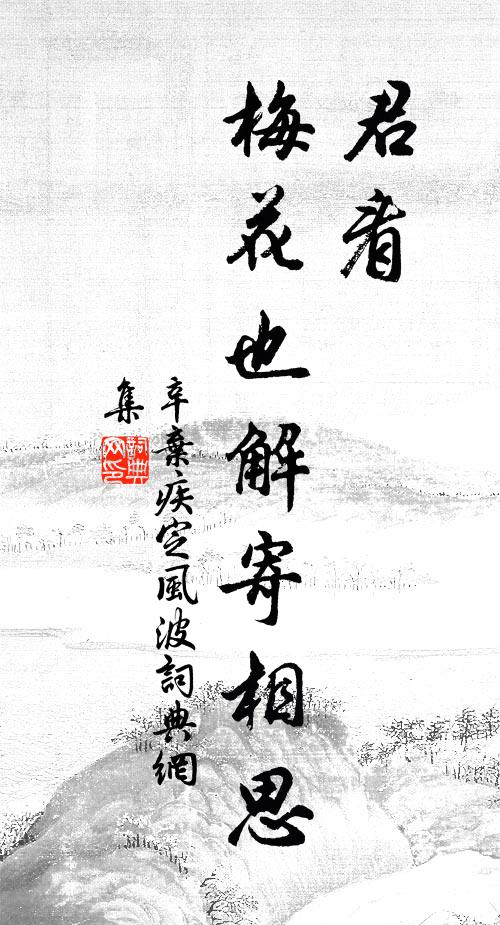 君看
梅花也解寄相思
辛棄疾定風波詞典網
集
詞典
网印